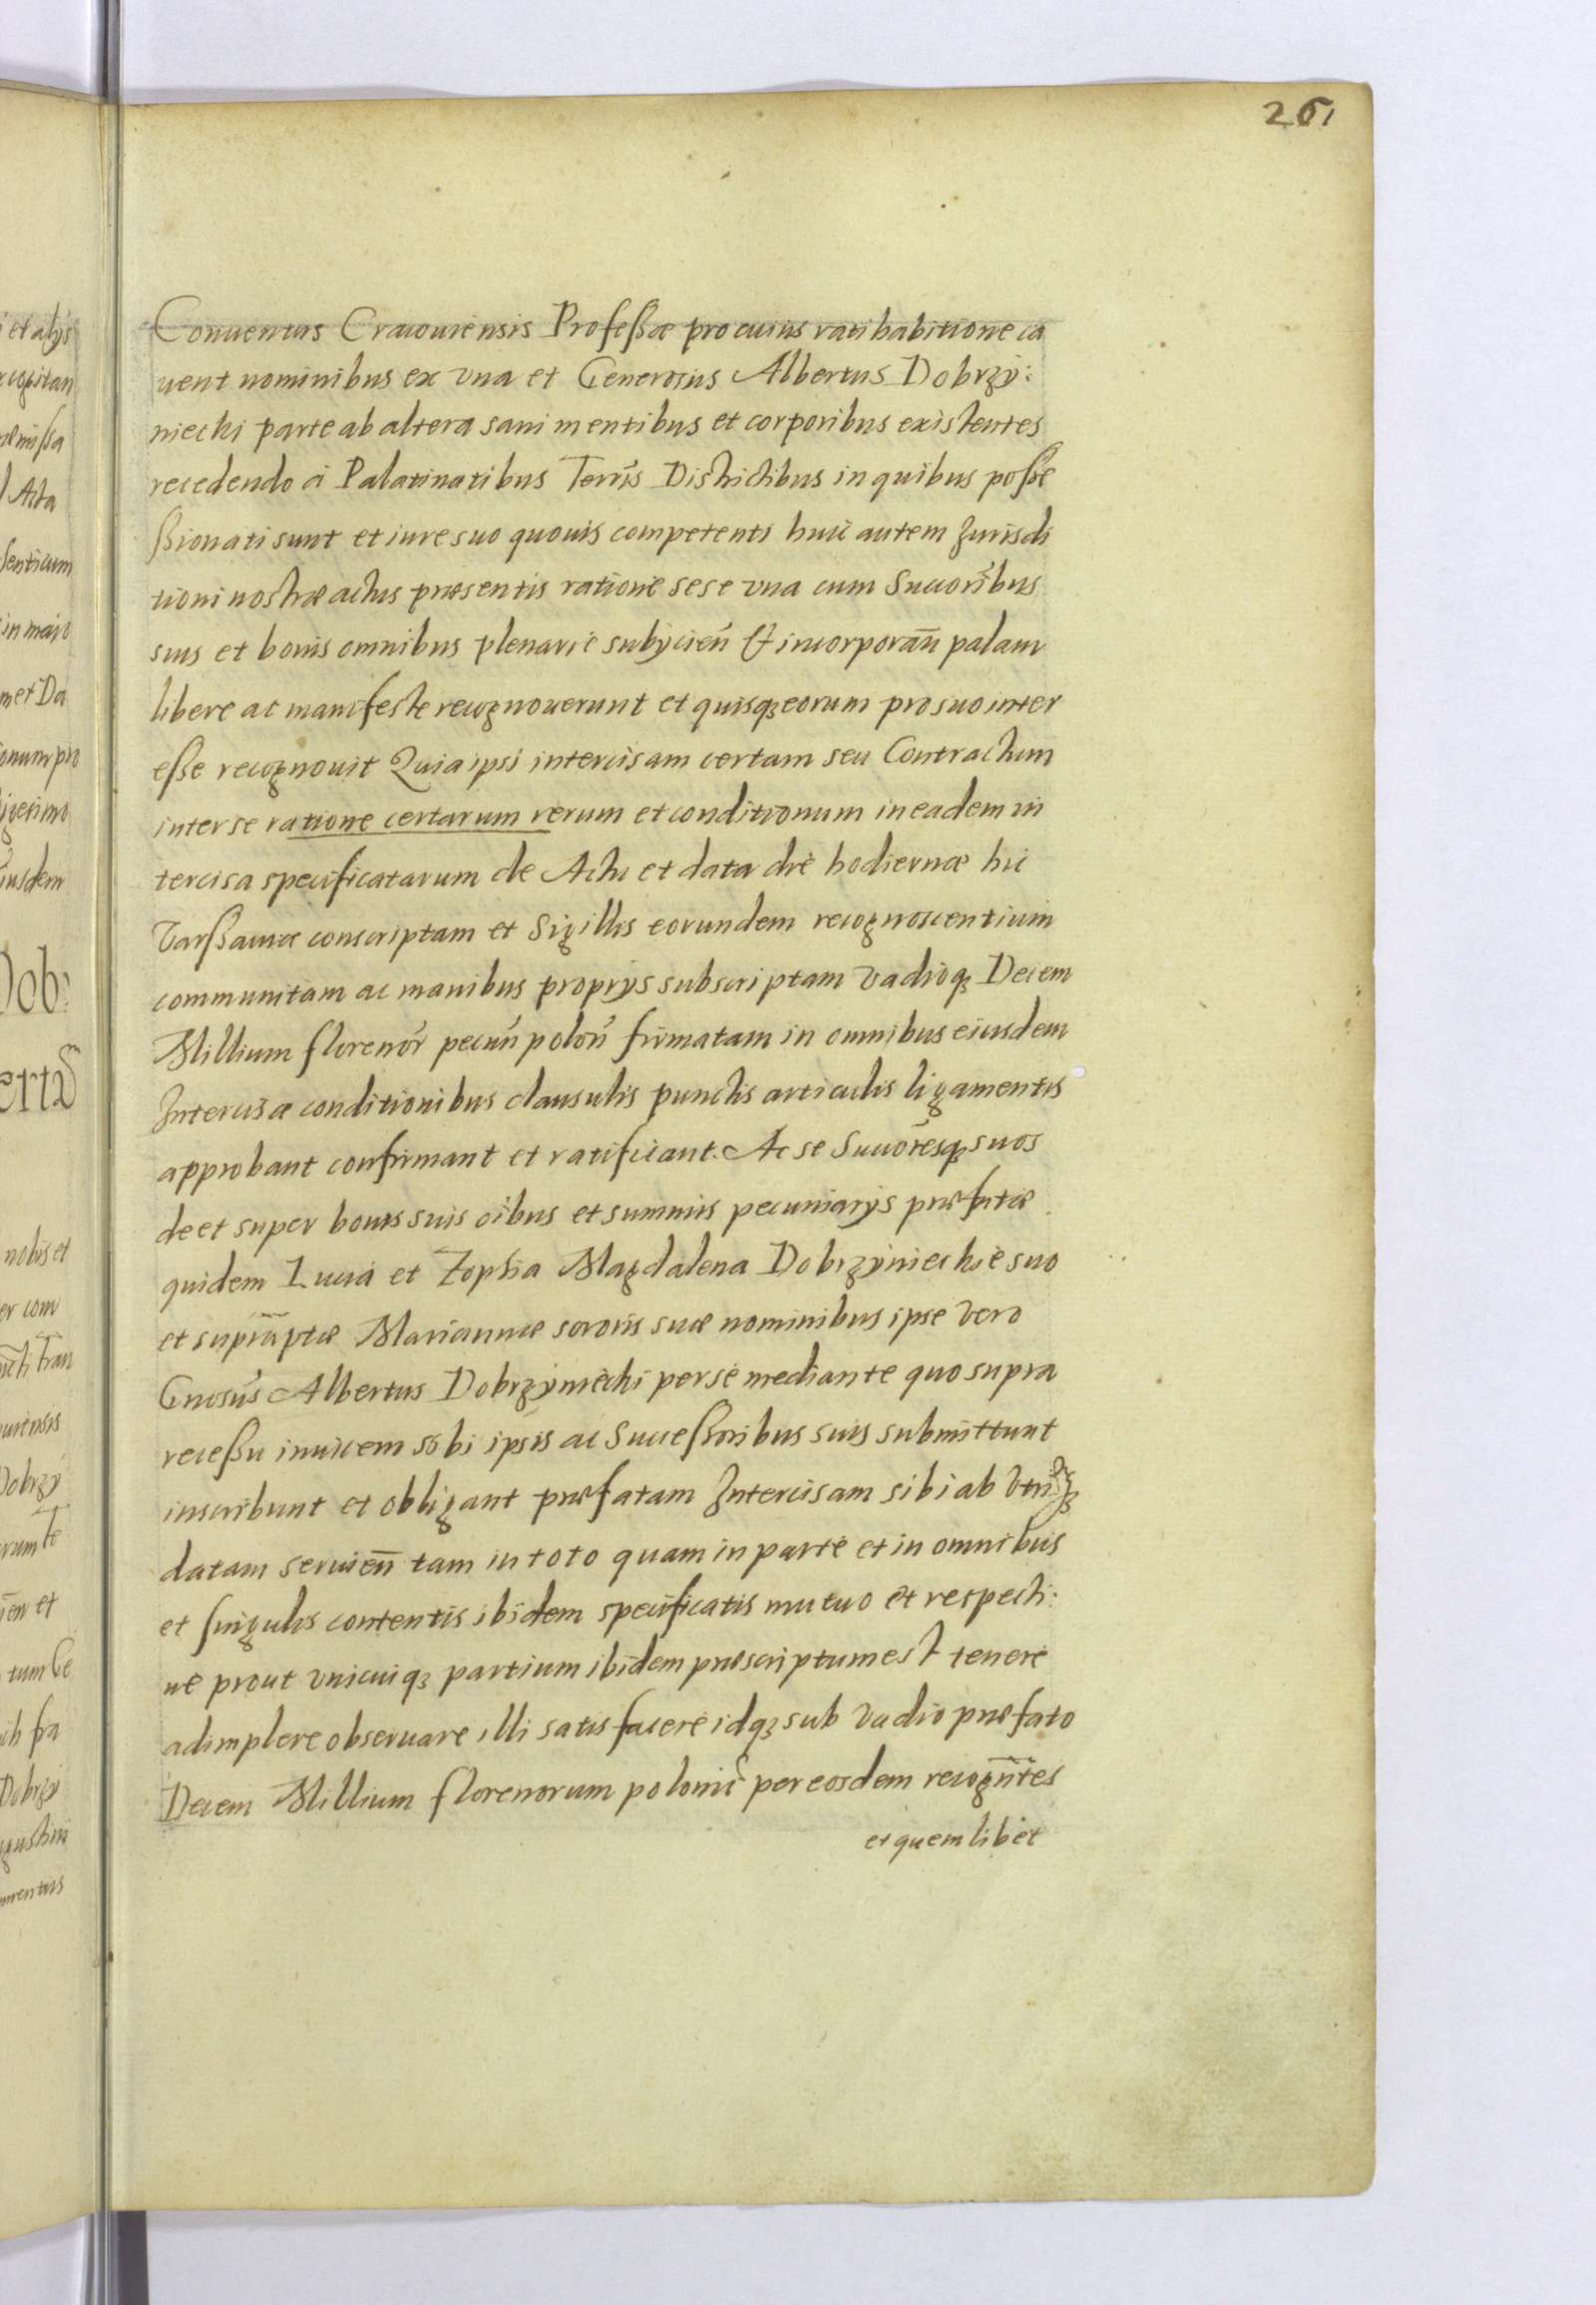 261
Conuentus Cracouiensis Professæ pro cuius ratihabitione ca
uent nominibus ex vna et Generosus Albertus Dobrzy:
niecki parte ab altera sani mentibus et corporibus existentes
recedendo à Palatinatibus Terris Districtibus in quibus posse
ssionati sunt et iure suo quouis competenti huic autem Jurisdi
tioni nostræ actus præsentis ratione sese vna cum Succoribus
suis et bonis omnibus plenarie subijcien̄ & incorporan̄ palam
libere ac manifeste recognouerunt et quisq3 eorum pro suo inter
esse recognouit Quia ipsi intercisam certam seu Contractum
inter se ratione certarum rerum et conditionum in eadem in
tercisa specificatarum de Actu et data diė hodiernæ hic
Varssauiæ conscriptam et Sigillis eorundem recognoscentium
communitam ac manibus proprijs subscriptam vadioq3 Decem
Millium florenor̃ pecun̄ polon̄ firmatam in omnibus eiusdem
Intercisæ conditionibus clausulis punctis articulis ligamentis
approbant confirmant et ratificant. Ac se Succōresq3 suos
de et super bonis suis oībus et summis pecuniarijs præfatæ
quidem Lucia et Zophia Magdalena Dobrzynieckie suo
et suprāptæ Mariannæ sororis suæ nominibus ipse vero
Gnosus Albertus Dobrzyniecki per se mediante quo supra
recessu inuicem sibi ipsis ac Successoribus suis submittunt
inscribunt et obligant præfatam Intercisam sibi ab vtrinq3
datam seruien̄ tam in toto quam in parte et in omnibus
et singulis contentis ibidem specificatis mutuo et respecti:
ue prout vnicuiq3 partium ibidem præscriptum est tenere
adimplere obseruare illi satisfacere idq3 sub vadio præfato
Decem Millium florenorum polonic̃ per eosdem recogn̄tes
et quemlibet